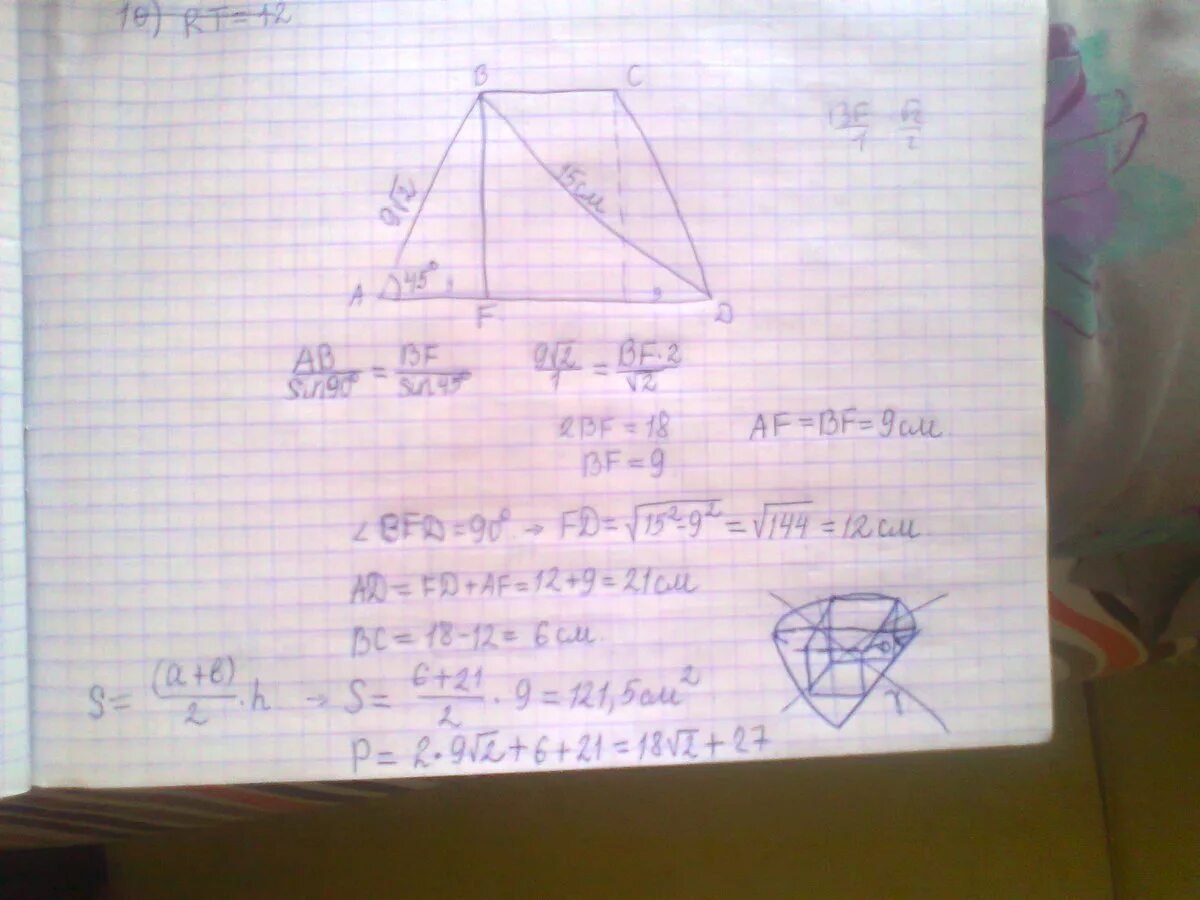 10) RT = 12
B C
BF/1 √2/2
9√2
15см
A 45° F D
AB/sin90° = BF/sin45° 9√2/1 = BF·2/√2
2BF = 18 AF = BF = 9см
BF = 9
∠BFD = 90° → FD = √15²-9² = √144 = 12 см
AD = FD + AF = 12 + 9 = 21 см
BC = 18 - 12 = 6 см.
S = (a+в)/2 · h → S = 6+21/2 · 9 = 121,5 см²
P = 2·9√2 + 6 + 21 = 18√2 + 27